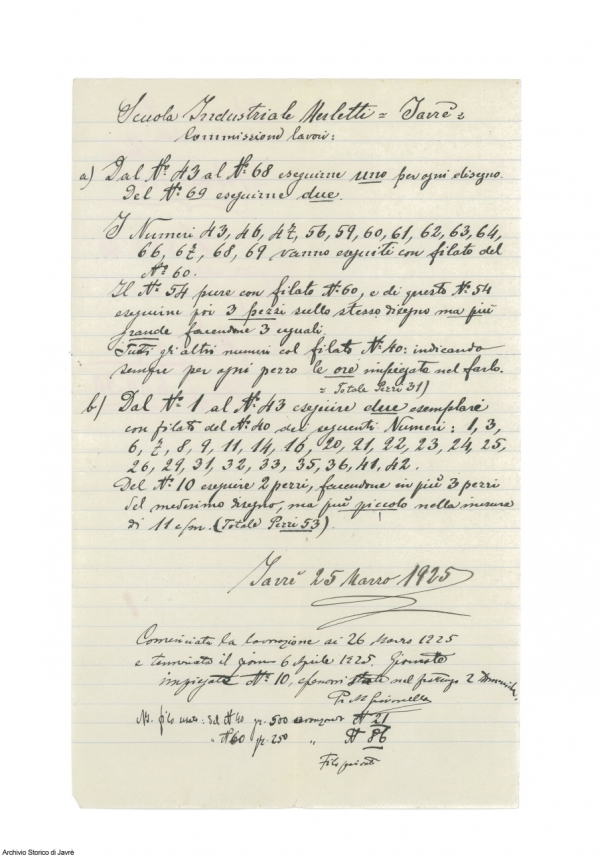 Scuola Industriale Merletti = Javrè =
Commissioni lavori:
a) Dal Nº 43 al Nº 68 eseguirne uno per ogni disegno.
Del Nº 69 eseguirne due.
I Numeri 43, 46, 47, 56, 59, 60, 61, 62, 63, 64,
66, 67, 68, 69 vanno eseguiti con filato del
Nº 60.
Il Nº 54 pure con filato Nº 60, e di questo Nº 54
eseguirne poi 3 pezzi sullo stesso disegno ma più
grande facendone 3 eguali.
Tutti gli altri numeri col filato Nº 40: indicando
sempre per ogni pezzo le ore impiegate nel farlo.
= Totale Pezzi 31)
b) Dal Nº 1 al Nº 43 eseguire due esemplari
con filato del Nº 40 dei seguenti Numeri: 1, 3,
6, 7, 8, 9, 11, 14, 16, 20, 21, 22, 23, 24, 25,
26, 29, 31, 32, 33, 35, 36, 41, 42.
Del Nº 10 eseguire 2 pezzi, facendone in più 3 pezzi
del medesimo disegno, ma più piccolo nella misura
di 11 c/m. (Totale Pezzi 53)
Javrè 25 Marzo 1925
Cominciata la lavorazione ai 26 Marzo 1925
e terminata il giorno 6 Aprile 1925. Giornate
impiegate Nº 10, nel 2
filo usato: del Nº 40 gr. 500 # 21
" Nº 60 gr. 250 " # 86
Filo
Archivio Storico di Javrè